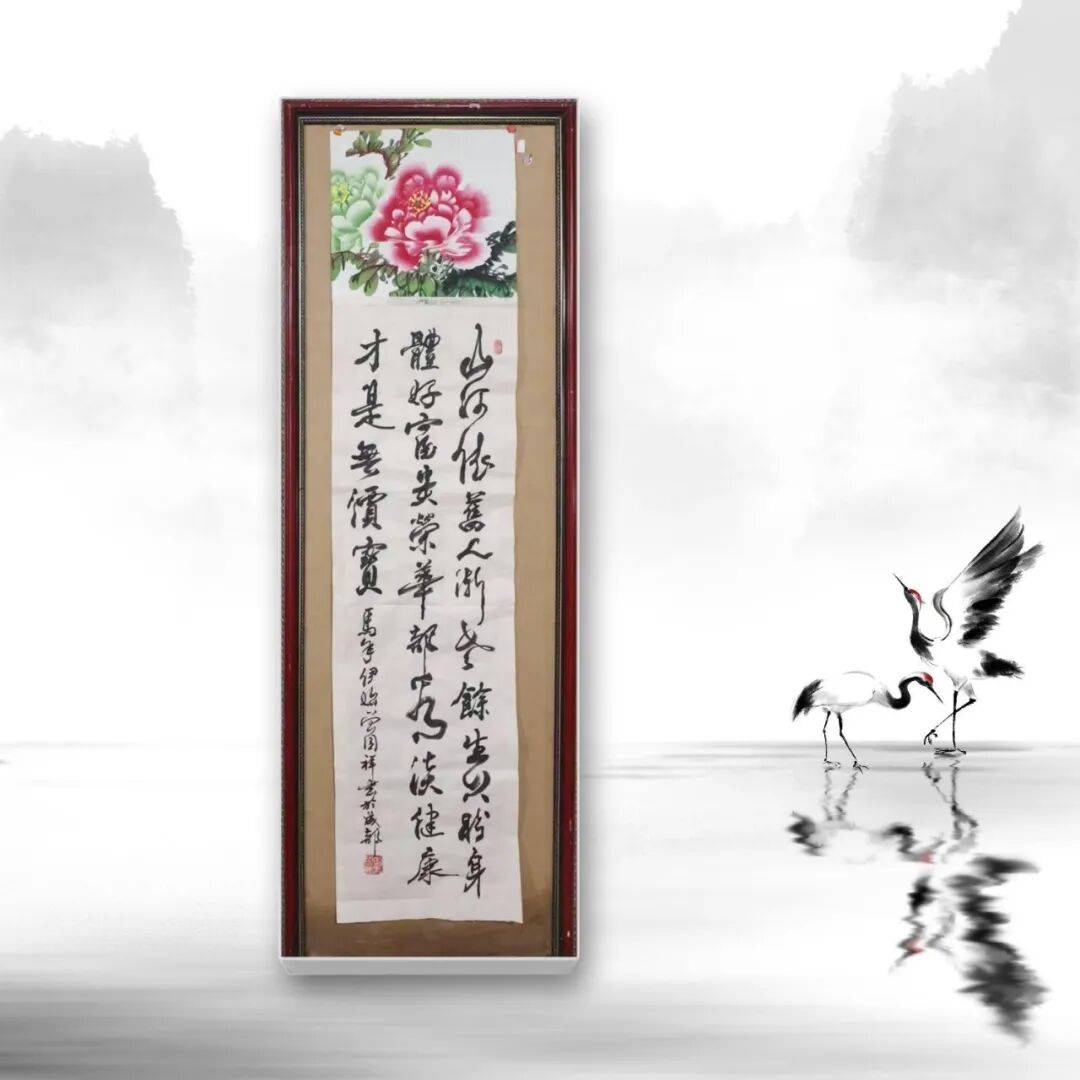 山河依舊人漸老餘生只盼身
體好富貴榮華都看淡健康
才是無價寶
馬年伊始 國祥書於成都